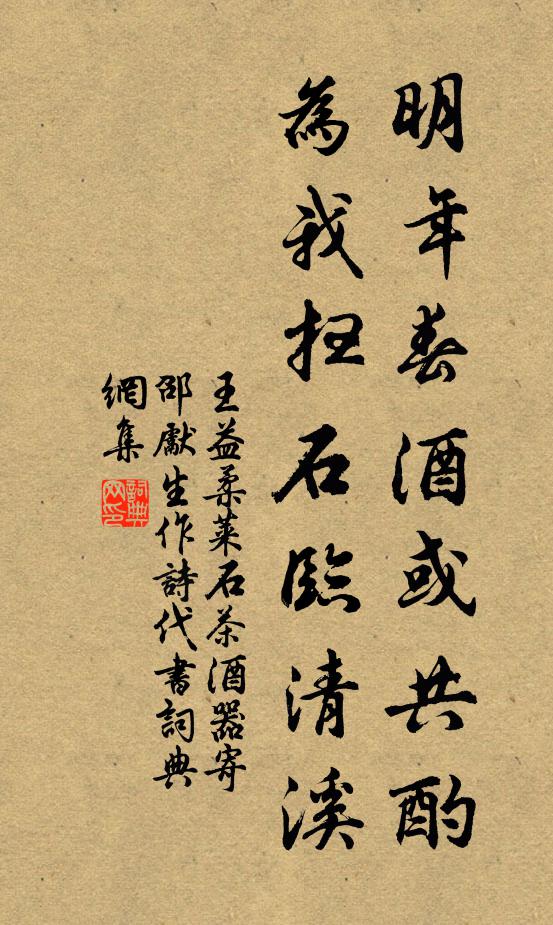 明年春酒或共酌
為我掃石臨清溪
王益柔萊石茶酒器寄
邵獻生作詩代書詞典
網集
詞典網印